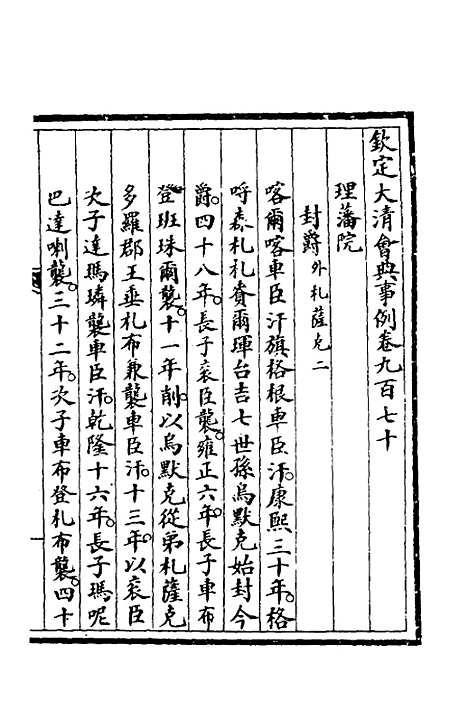 欽定大清會典事例卷九百七十
理藩院
封爵外札薩克二
喀爾喀車臣汗旗格根車臣汗。康熙三十年。格
呼森札札賚爾琿台吉七世孫烏默克始封今
爵。四十八年。長子袞臣襲。雍正六年。長子車布
登班珠爾襲。十一年。削。以烏默克從弟札薩克
多羅郡王垂札布兼襲車臣汗。十三年。以袞臣
次子達瑪璘襲車臣汗。乾隆十六年。長子瑪呢
巴達喇襲。三十二年。次子車布登札布襲。四十
一